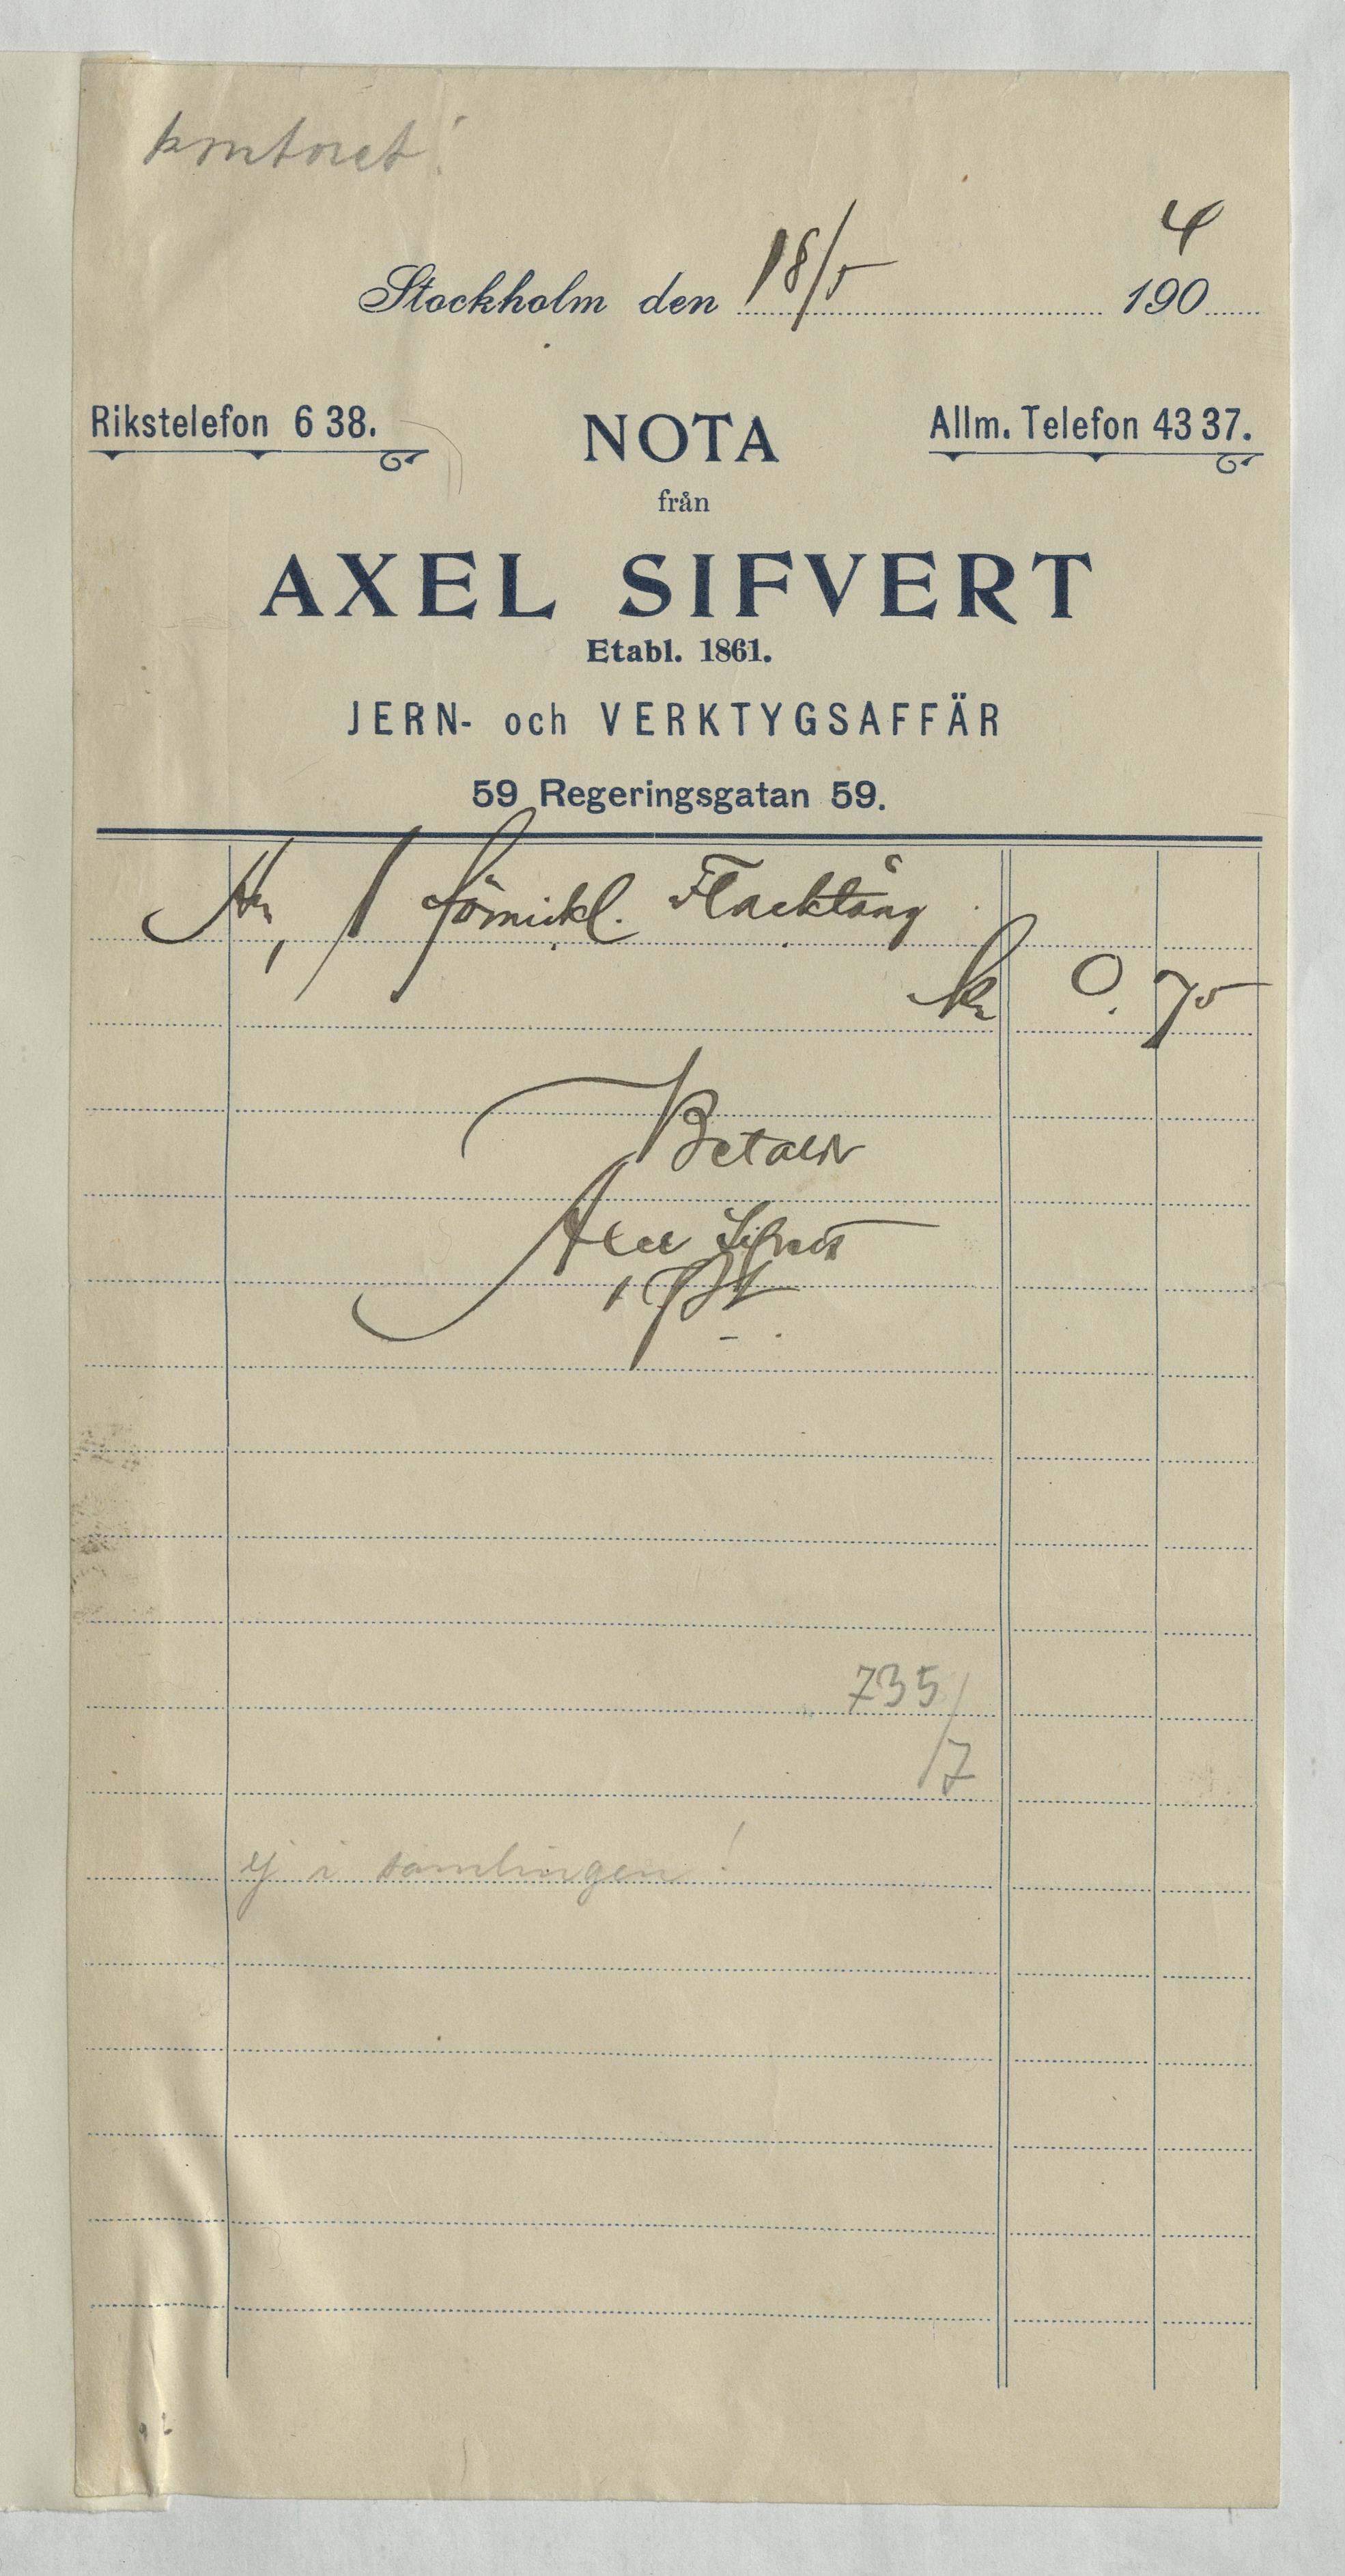 kontoret!
Stockholm den 18/5 1904
Rikstelefon 6 38.
NOTA
Allm. Telefon 43 37.
från
AXEL SIFVERT
Etabl. 1861.
JERN- och VERKTYGSAFFÄR
59 Regeringsgatan 59.
1 förnickl. Flacktång
Kr 0.75
Betalt
Axel Sifvert
735/7
ej i samlingen!